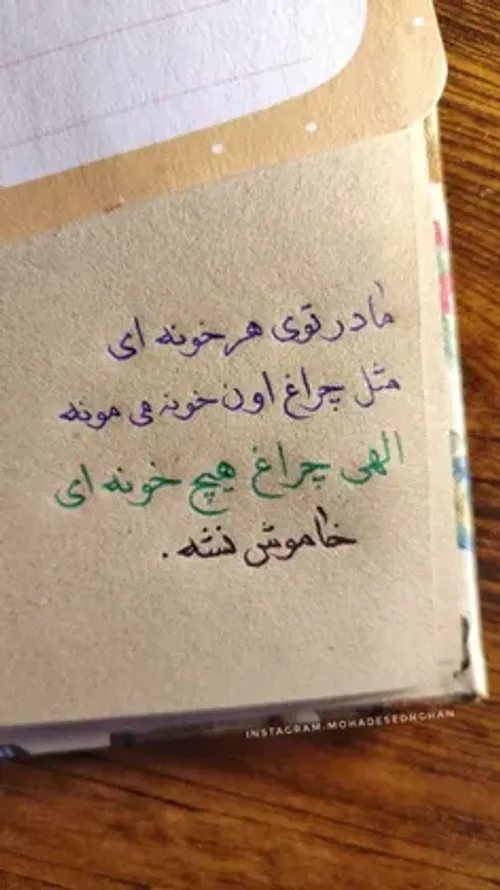 مادر توی هر خونه ای
مثل چراغ اون خونه می مونه
الهی چراغ هیچ خونه ای
خاموش نشه .
INSTAGRAM:MOHADESEDHGHAN